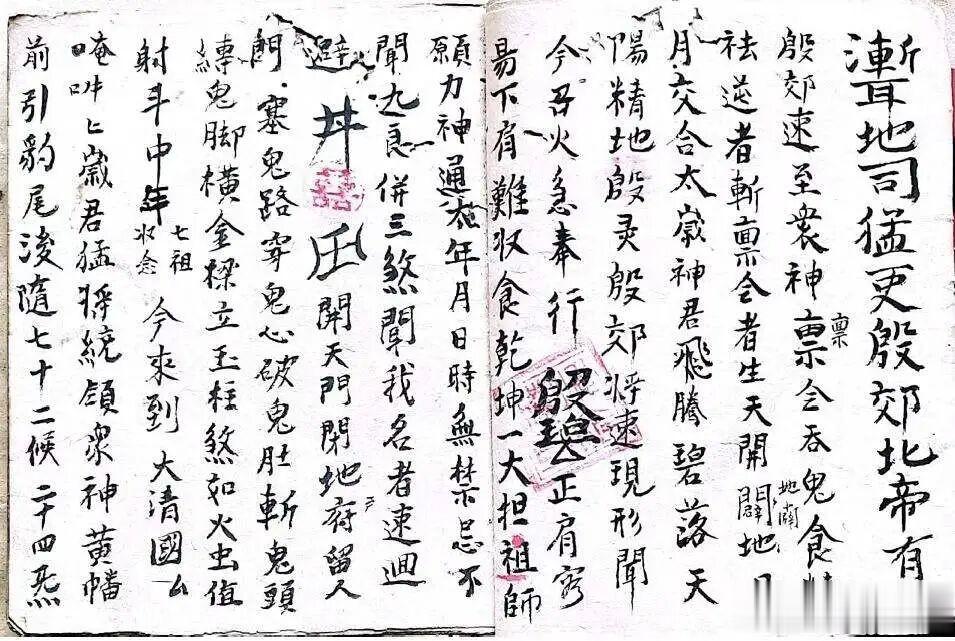 地司猛吏殷郊北帝有
殷郊速至衆神禀令吞鬼食
禀
祛逆者斬禀令者生天開闢地
地闢
月交合太歲神君飛騰碧落天
陽精地殷灵殷郊将速現形聞
今召火急奉行 正肩
易下有難収食乾坤一大担祖師
願力神通 年月日時無禁忌不
聞九良併三煞聞我名者速迴
避 開天門閉地府留人
門塞鬼路穿鬼心破鬼肚斬鬼頭
縛鬼脚橫金樑立玉柱煞如火虫值
射斗中年 七祖 今來到 大清國厶
収念
唵吽吽歲君猛将統領衆神黄幡
前引豹尾後隨七十二候二十四炁